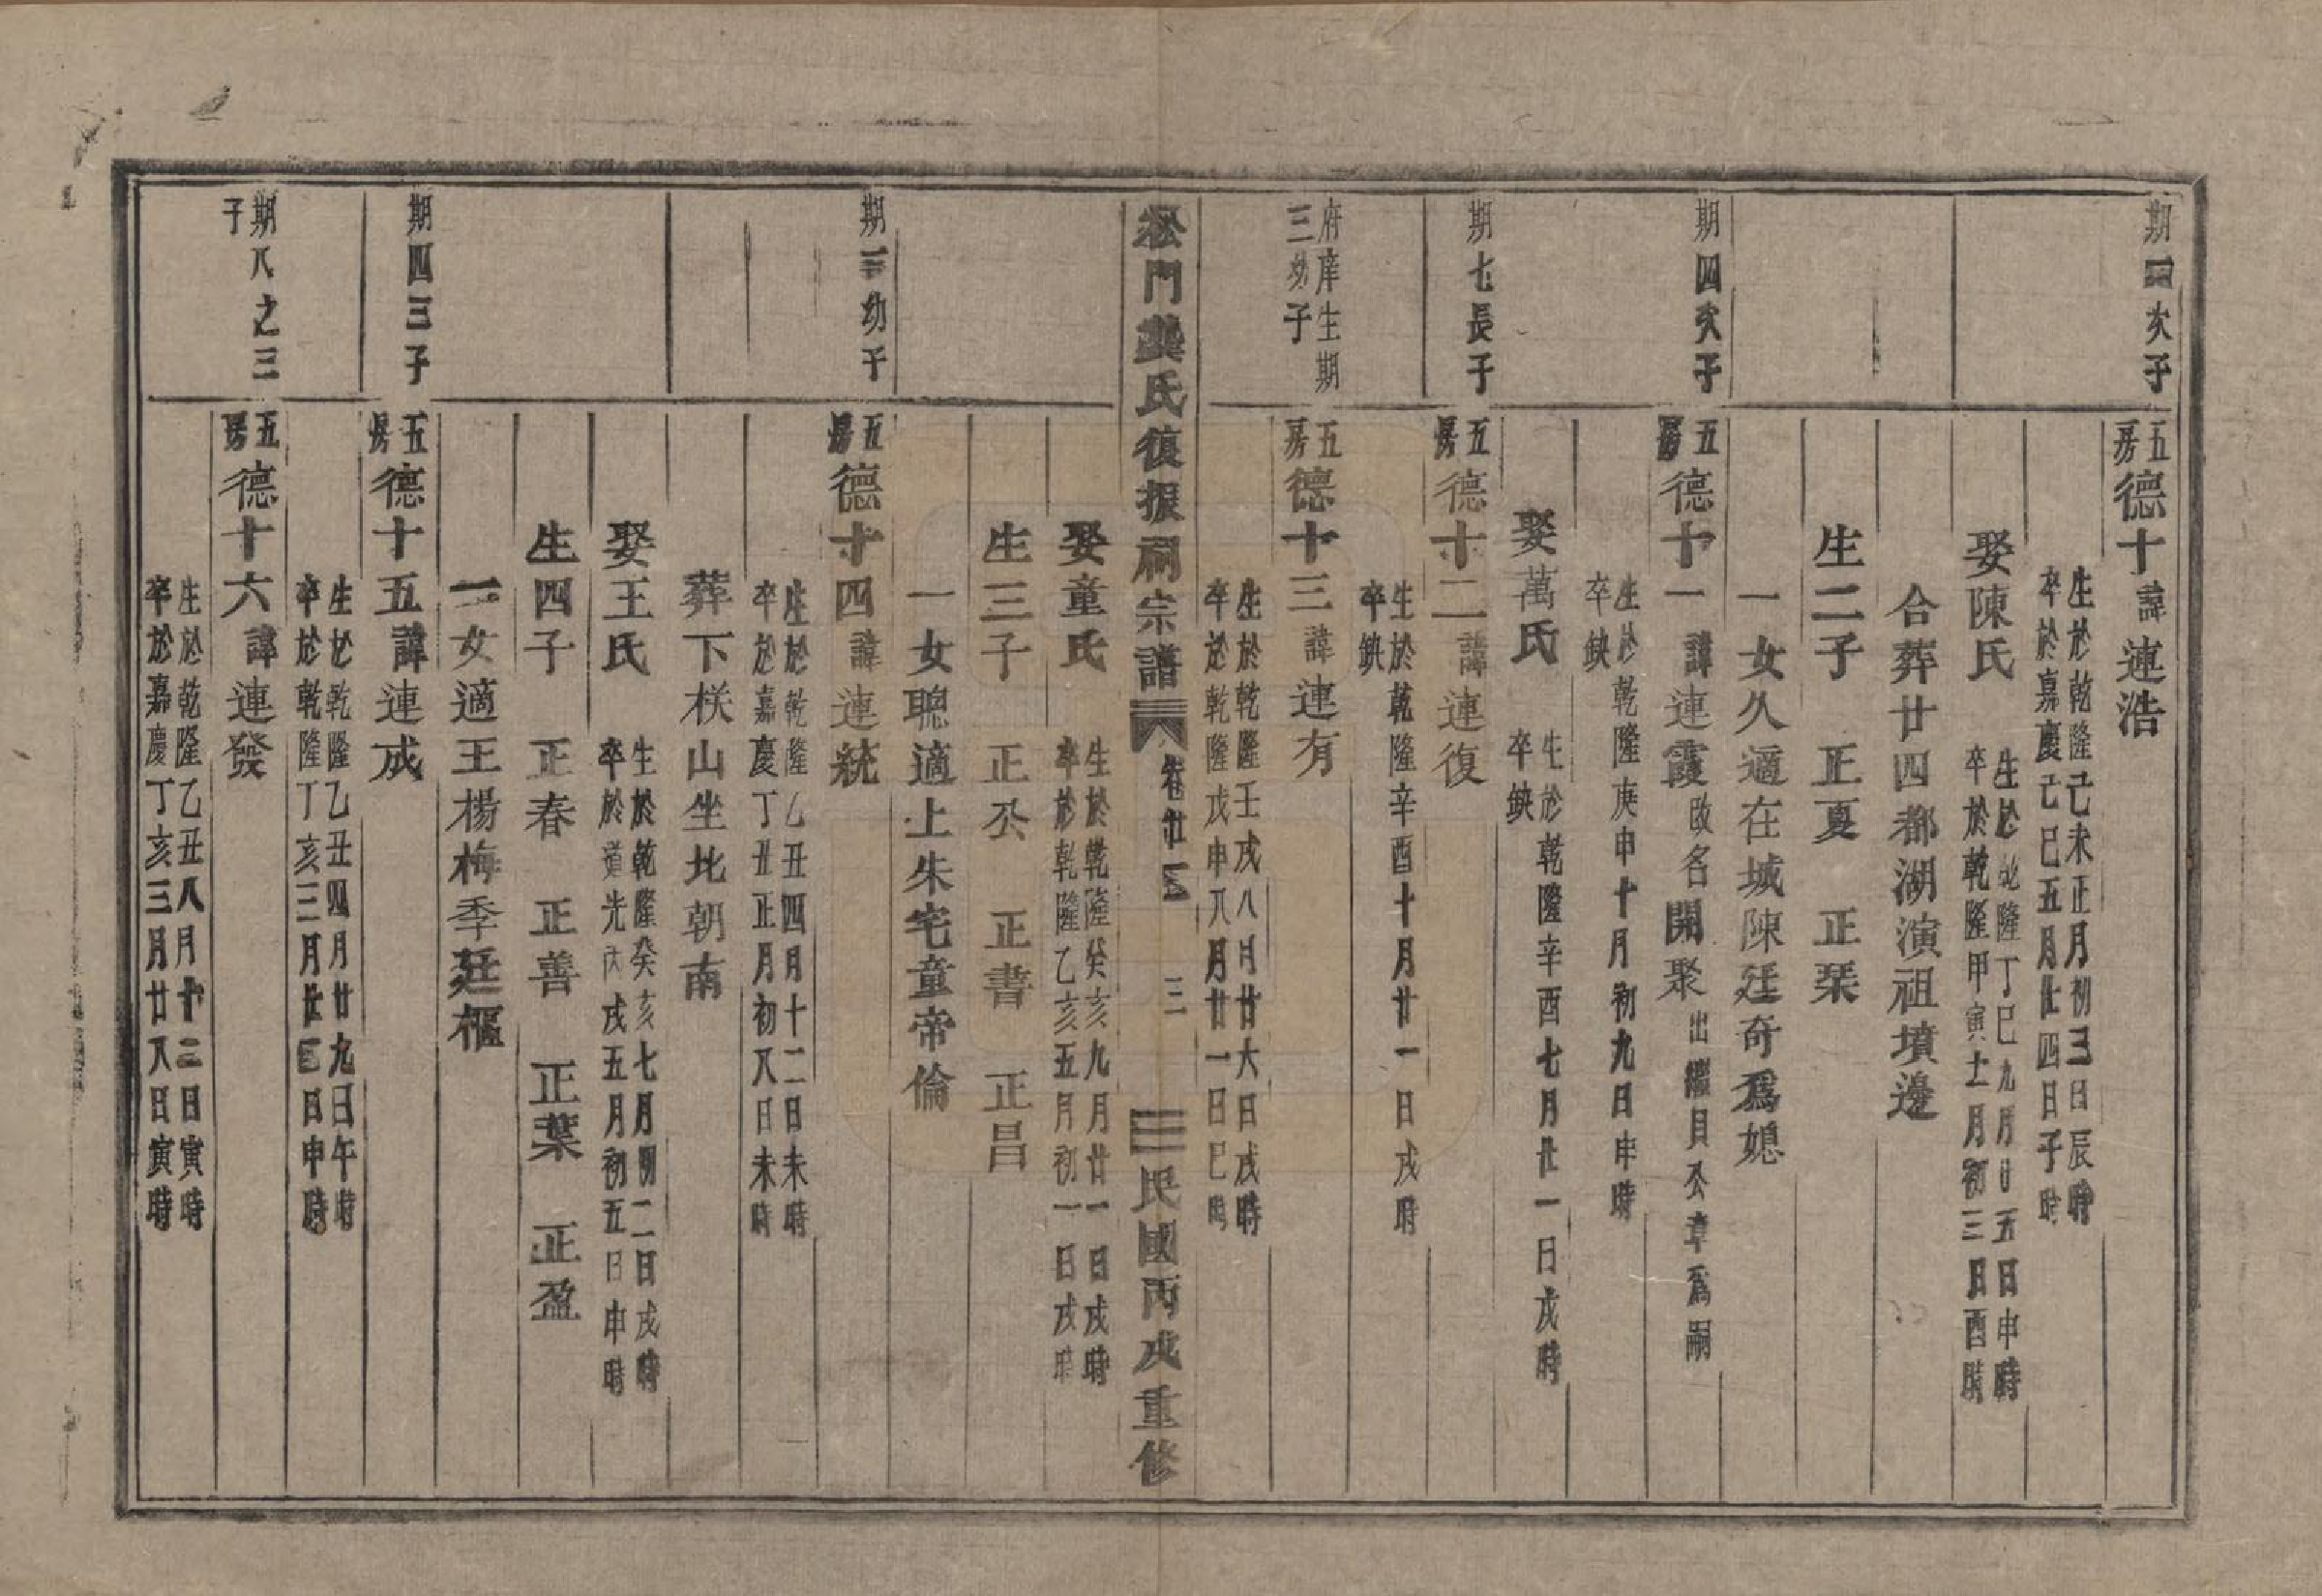 期四次子
五房德十諱連浩
生於乾隆己未正月初三日辰時
卒於嘉慶己巳五月廿四日子時
娶陳氏
生於乾隆丁巳九月廿五日申時
卒於乾隆甲寅十二月初三日酉時
合葬廿四都湖演祖墳邊
生二子 正夏 正琹
一女久適在城陳廷奇為媳
期四次子
五房德十一諱連霞改名開聚出繼公章為嗣
生於乾隆庚申十月初九日申時
卒缺
娶萬氏
生於乾隆辛酉七月廿一日戌時
卒缺
期七長子
五房德十二諱連復
生於乾隆辛酉十月廿一日戌時
卒缺
府庠生期三幼子
五房德十三諱連有
生於乾隆壬戌八月廿六日戌時
卒於乾隆戊申八月廿一日巳時
松門龔氏復振祠宗譜 卷廿三 三 民國丙戌重修
娶童氏
生於乾隆癸亥九月廿一日戌時
卒於乾隆乙亥五月初一日戌時
生三子 正公 正書 正昌
一女聰適上朱宅童帝倫
期三幼子
五房德十四諱連統
生於乾隆乙丑四月十二日未時
卒於嘉慶丁丑正月初八日未時
葬下栚山坐北朝南
娶王氏
生於乾隆癸亥七月初二日戌時
卒於道光丙戌五月初五日申時
生四子 正春 正善 正葉 正盈
一女適王楊梅季廷樞
期四三子
五房德十五諱連成
生於乾隆乙丑四月廿九日午時
卒於乾隆丁亥三月廿三日申時
期八之三子
五房德十六諱連發
生於乾隆乙丑八月十二日寅時
卒於嘉慶丁亥三月廿八日寅時